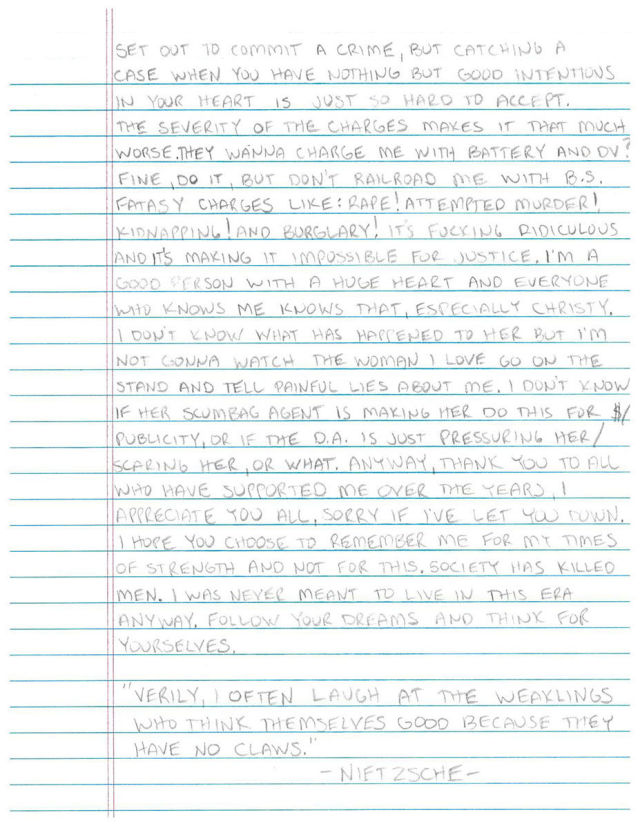 SET OUT TO COMMIT A CRIME, BUT CATCHING A
CASE WHEN YOU HAVE NOTHING BUT GOOD INTENTIONS
IN YOUR HEART IS JUST SO HARD TO ACCEPT.
THE SEVERITY OF THE CHARGES MAKES IT THAT MUCH
WORSE. THEY WANNA CHARGE ME WITH BATTERY AND DV?
FINE, DO IT, BUT DON'T RAILROAD ME WITH B.S.
FATASY CHARGES LIKE: RAPE! ATTEMPTED MURDER!
KIDNAPPING! AND BURGLARY! IT'S FUCKING RIDICULOUS
AND IT'S MAKING IT IMPOSSIBLE FOR JUSTICE. I'M A
GOOD PERSON WITH A HUGE HEART AND EVERYONE
WHO KNOWS ME KNOWS THAT, ESPECIALLY CHRISTY.
I DON'T KNOW WHAT HAS HAPPENED TO HER BUT I'M
NOT GONNA WATCH THE WOMAN I LOVE GO ON THE
STAND AND TELL PAINFUL LIES ABOUT ME. I DON'T KNOW
IF HER SCUMBAG AGENT IS MAKING HER DO THIS FOR $/
PUBLICITY, OR IF THE D.A. IS JUST PRESSURING HER/
SCARING HER, OR WHAT. ANYWAY, THANK YOU TO ALL
WHO HAVE SUPPORTED ME OVER THE YEARS, I
APPRECIATE YOU ALL, SORRY IF I'VE LET YOU DOWN.
I HOPE YOU CHOOSE TO REMEMBER ME FOR MY TIMES
OF STRENGTH AND NOT FOR THIS. SOCIETY HAS KILLED
MEN. I WAS NEVER MEANT TO LIVE IN THIS ERA
ANYWAY. FOLLOW YOUR DREAMS AND THINK FOR
YOURSELVES.
"VERILY, I OFTEN LAUGH AT THE WEAKLINGS
WHO THINK THEMSELVES GOOD BECAUSE THEY
HAVE NO CLAWS."
- NIETZSCHE -